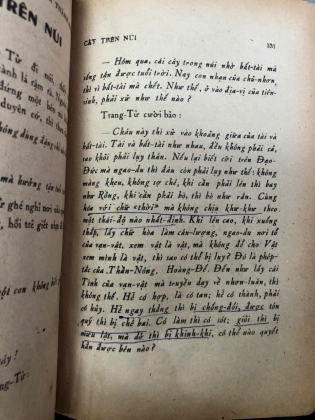 TRÊN NÚI
CÂY TRÊN NÚI
131
— Hôm qua, cái cây trong núi nhờ bất-tài mà
sống tận được tuổi trời. Nay con nhạn của chủ-nhơn,
thì vì bất-tài mà chết. Như thế, ở vào địa-vị của tiên-
sinh, phải xử như thế nào?
Trang-Tử cười bảo:
— Châu này thì xử vào khoảng giữa của tài và
bất-tài. Tài và bất-tài như nhau, đều không phải cả,
sao khỏi phải lụy thân. Nếu lại biết cỡi trên Đạo-
Đức mà ngao-du thì đâu còn phải lụy như thế: không
màng khen, không sợ chê, khi cần phải lên thì bay
như Rồng, khi cần phải bò, thì bò như rắn. Cùng
hóa với chữ «thời» mà không chịu khư-khư theo
một thái-độ nào nhất-định. Khi lên cao, khi xuống
thấp, lấy chữ hòa làm cân-lượng, ngao-du nơi tổ
của vạn-vật, xem vật là vật, mà không để cho Vật
xem mình là vật, thì sao có thể bị lụy? Đó là phép-
tắc của...Thần-Nông. Hoàng-Đế. Đến như lấy cái
Tình của vạn-vật mà truyền dạy về nhơn-luân, thì
không thế. Hễ có hợp, là có tan; hễ có thành, phải
có hủy. Hễ ngay thẳng thì bị chống-đối, được tôn
quý thì bị chê bai. Có làm thì có sót; giỏi thì bị
mưu lật, mà dở thì bị khinh-khi, có thể nào quyết
hẳn được bên nào?